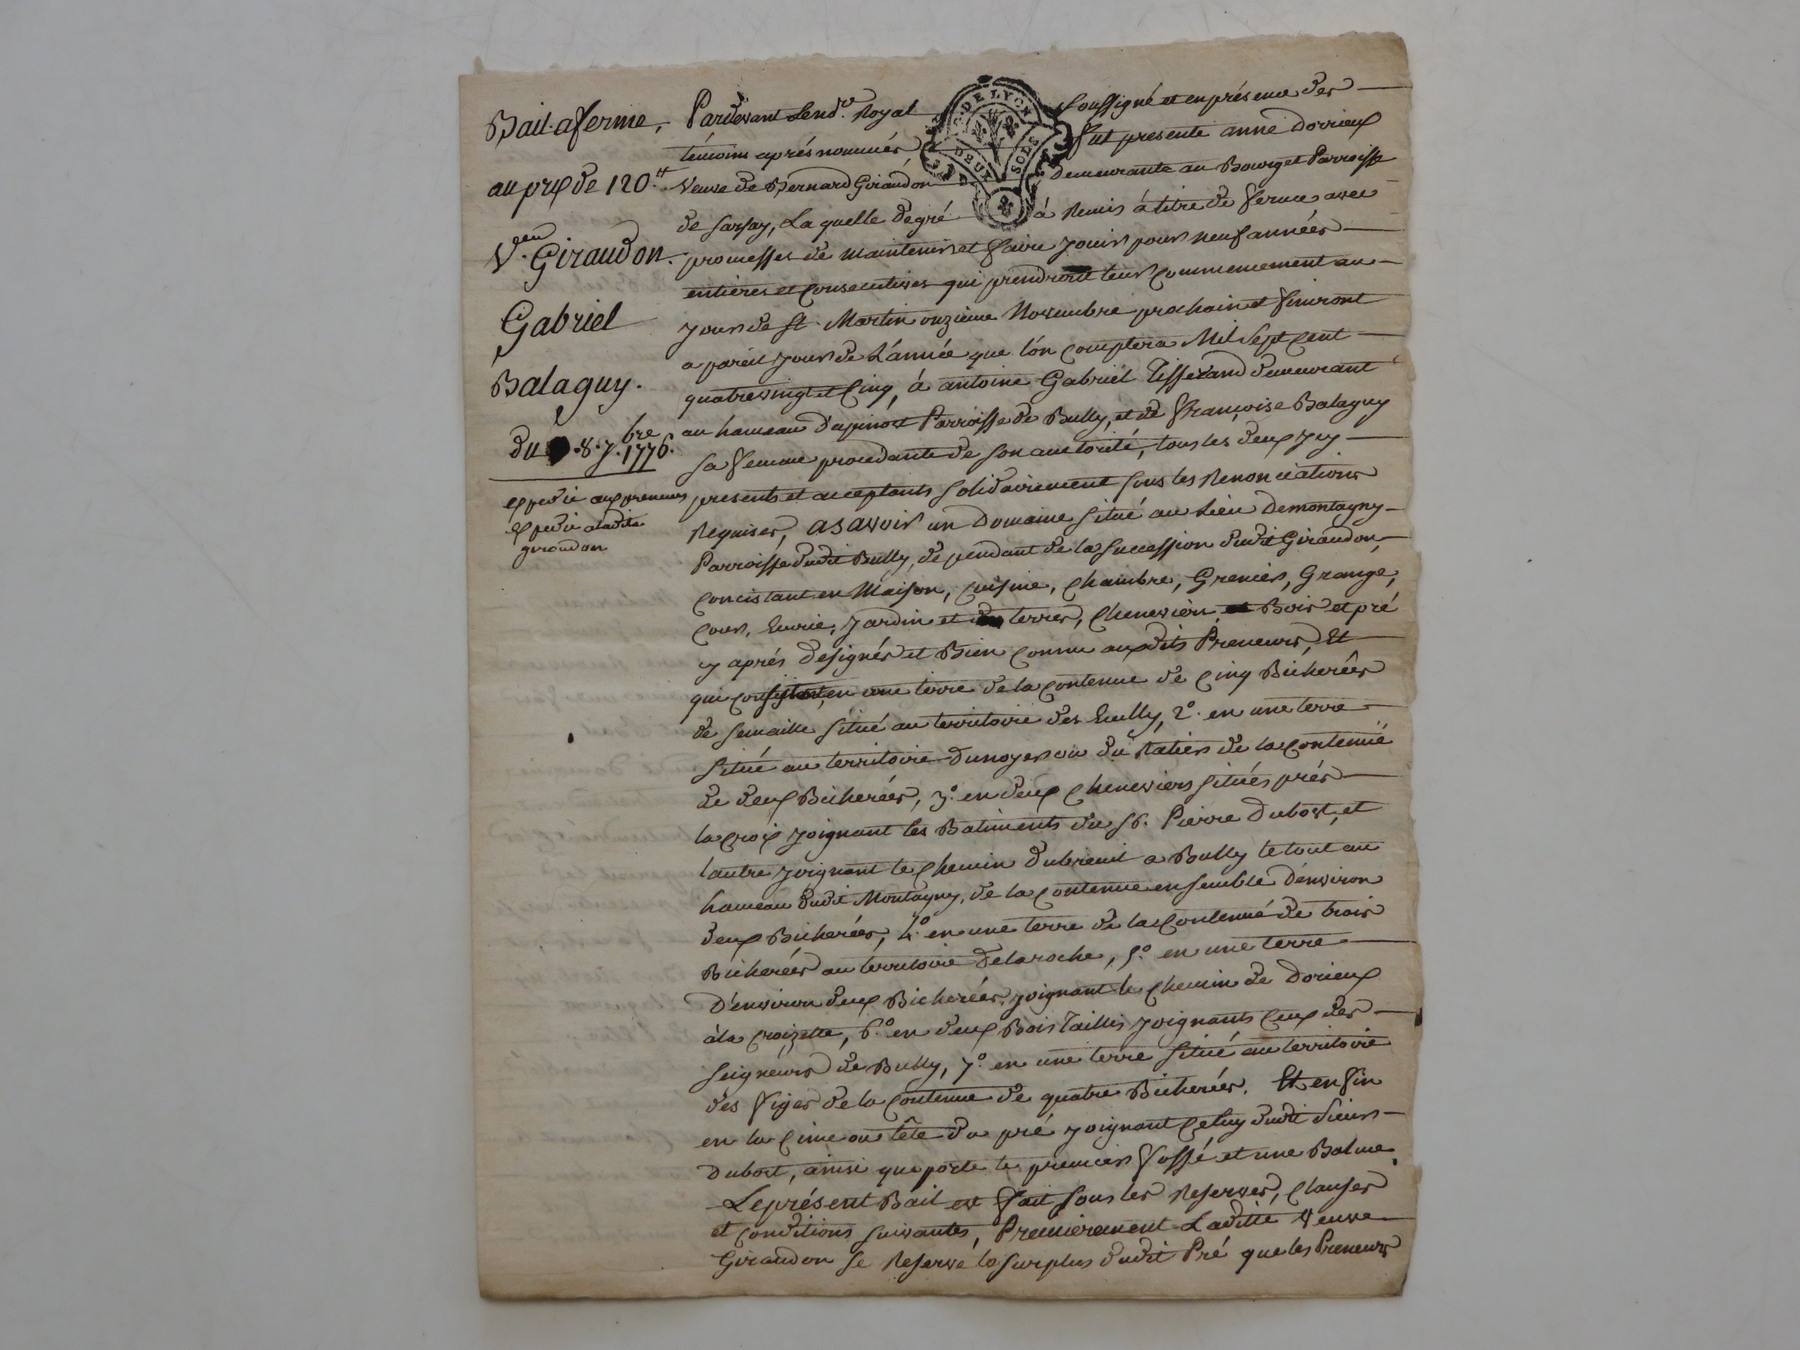 Bail aferme,
au prix de 120.tt
V.eu Giraudon.
Gabriel
Balaguy.
du 8. 7.bre 1776.
expedié aux preneurs
Expedié aladite
giraudon
G. DE LYON
DEUX SOLS
Pardevant Lend.re Royal soussigné et en présence des
témoins aprés nommés fut presente anne dorieux
veuve de Bernard Giraudon demeurante au Bourg et Parroisse
de Sarsay, La quelle de gré à Remis à titre de ferme avec
promesses de maintenir et faire jouir pour neuf années
entieres et consecutives qui prendront leur commencement au
jour de St. Martin onzieme Novembre prochain et finiront
a pareil jour de L'année que l'on comptera Mil Sept Cent
quatrevingt et Cinq, à antoine Gabriel Tisserand demeurant
au hameau d'apinost Parroisse de Bully, et de françoise Balaguy
sa femme procedante de son autorité, tous les deux icy
presents et acceptants solidairement sous les Renonciations
Requises, ASAVOIR un Domaine situé au Lieu demontagny
Parroisse dudit Bully, de pendant de la succession dudit Giraudon,
concistant en Maison, Cuisine, Chambre, Grenier, Grange,
Cour, Ecurie, Jardin et terres, Chenevier, Bois et pré
cy aprés designés et Bien connu auxdits Preneurs, Et
qui consistent, en une terre de la contenue de Cinq Bicherées
de semaille situé au territoire des 2.° en une terre
situé au territoire dunoyer ou du Ratier de la contenuë
de deux Bicherées, 3.° en deux Cheneviers situés près
la croix joignant les Batiments du Sr. Pierre Dubost, et
lautre joignant le Chemin dubreuil a Bully le tout au
hameau dudit Montagny, de la contenue ensemble d'environ
deux Bicherées, 4.° en une terre de la contenué de trois
Bicherées au territoire delaroche, 5.° en une terre
D'environ deux Bicherées, joignant le Chemin de Dorieux
à la Croizette, 6.° en deux Bois Taillis joignants Ceux des
seigneurs de Bully, 7.° en une terre situé au territoire
des figes de la contenue de quatre Bicherées. Et enfin
en la Cime ou tête du pré joignant Celuy dudit Sieur
Dubost, ainsi que porte le premier fossé et une Balme.
Leprésent Bail est fait sous les Reserves, Clauses
et conditions suivantes, Premierement Laditte veuve
Giraudon se Reserve le surplus dudit Pré que les Preneurs